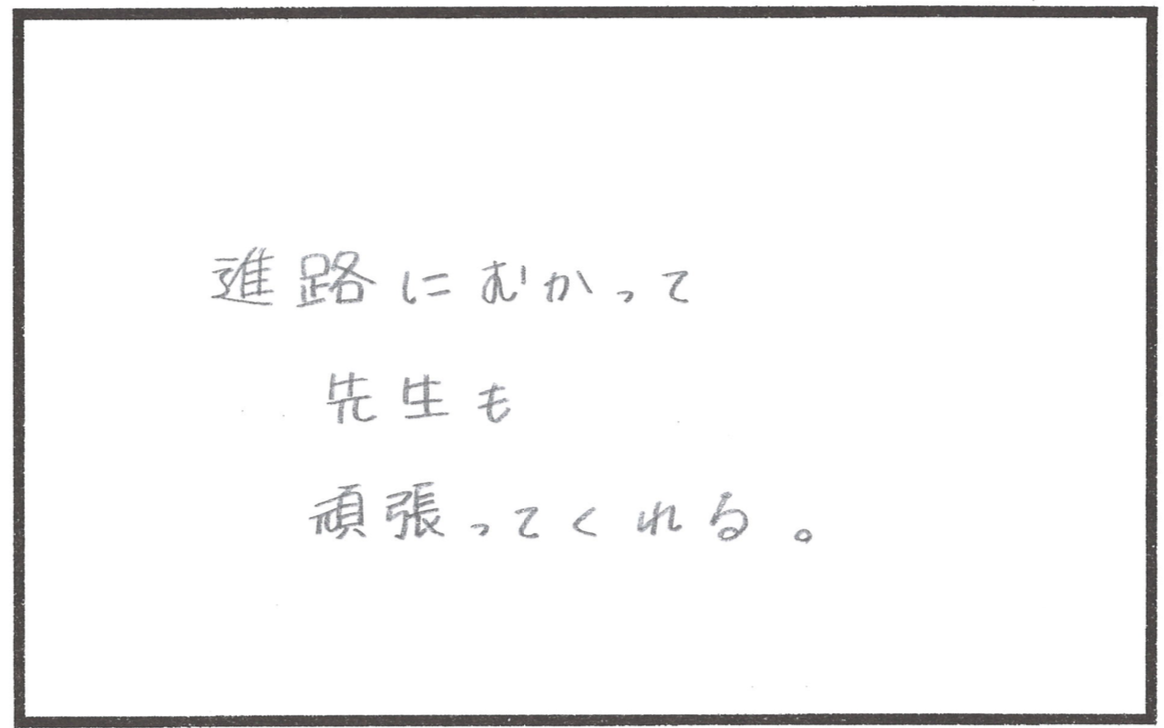 進路にむかって
先生も
頑張ってくれる。